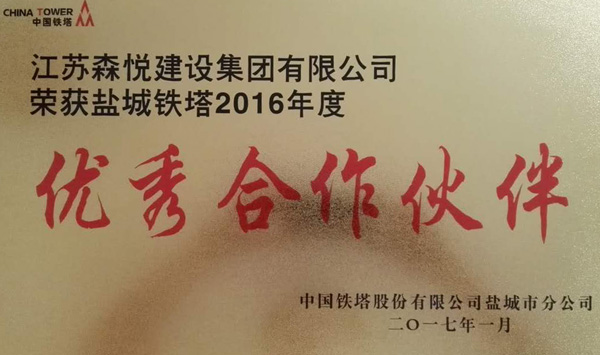 CHINA TOWER
中国铁塔
江苏森悦建设集团有限公司
荣获盐城铁塔2016年度
优秀合作伙伴
中国铁塔股份有限公司盐城市分公司
二〇一七年一月